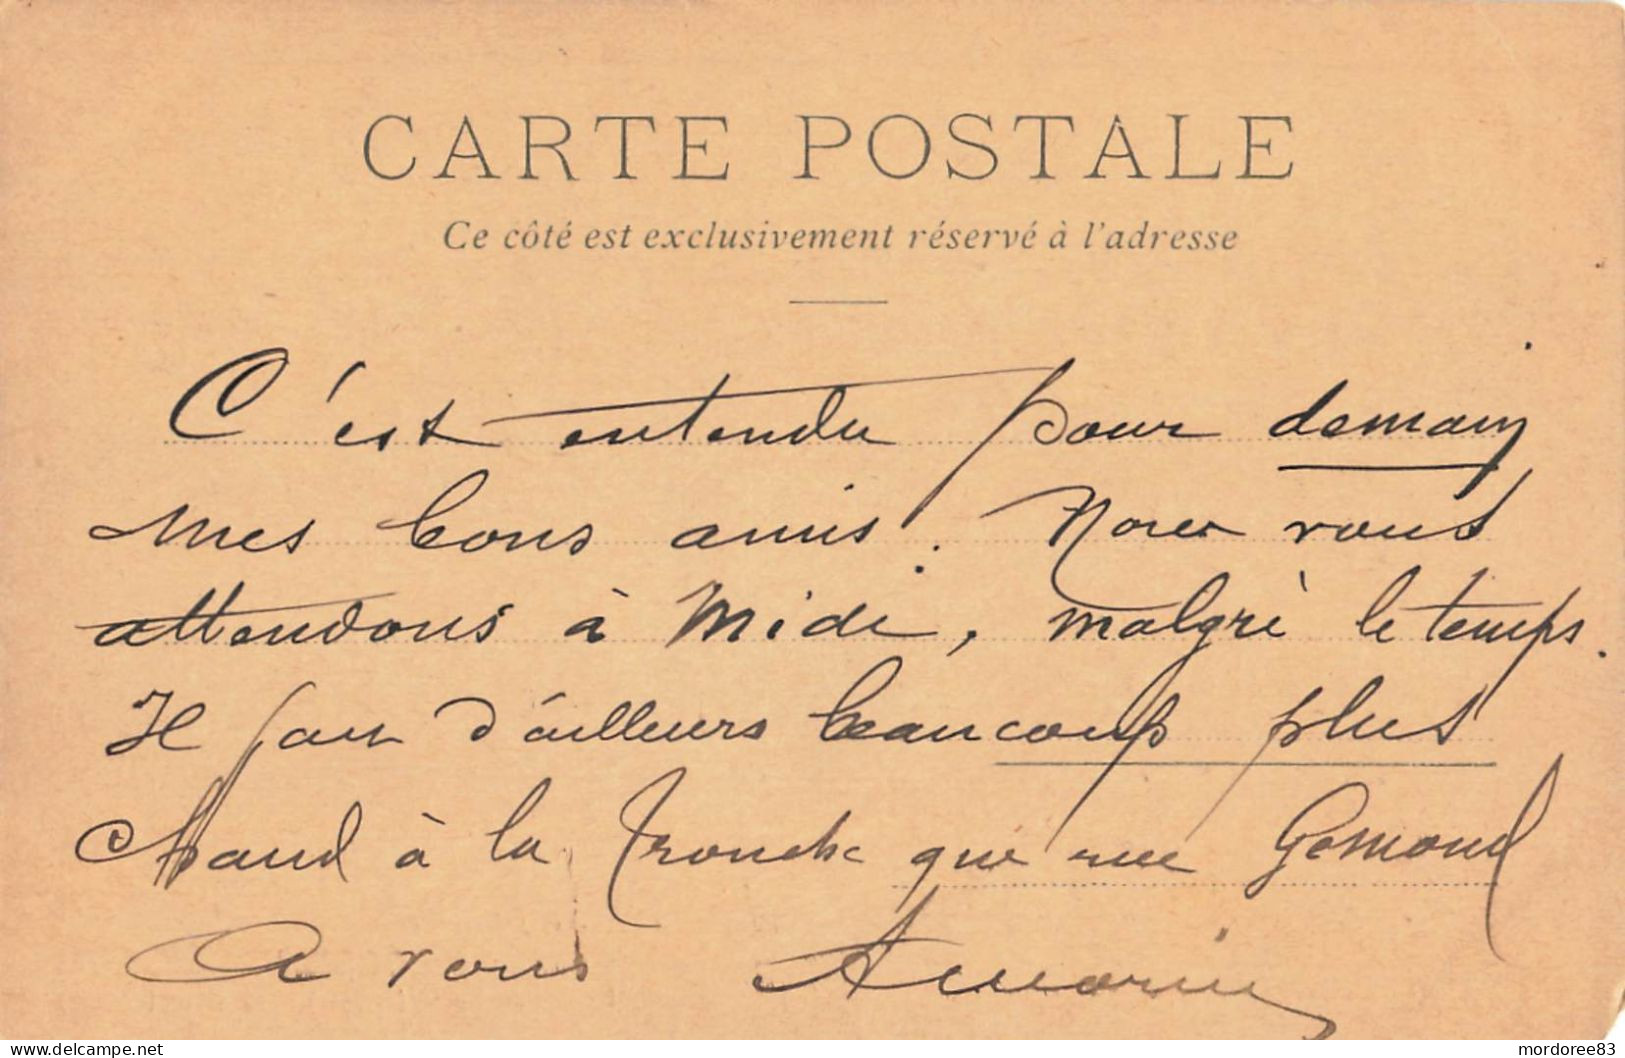 CARTE POSTALE
Ce côté est exclusivement réservé à l'adresse
C'est entendu pour demain
mes bons amis. Nous vous
attendons à Midi, malgré le temps.
Il fait d'ailleurs beaucoup plus
chaud à la Tronche que rue
A vous
delcampe.net
mordoree83